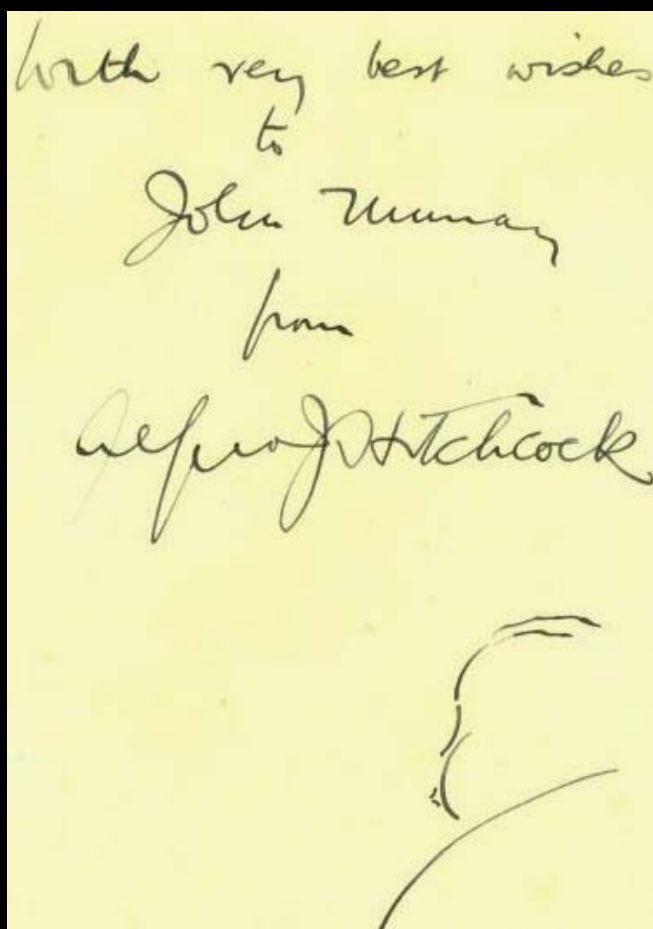 With very best wishes
to
John Murray
from
Alfred J Hitchcock